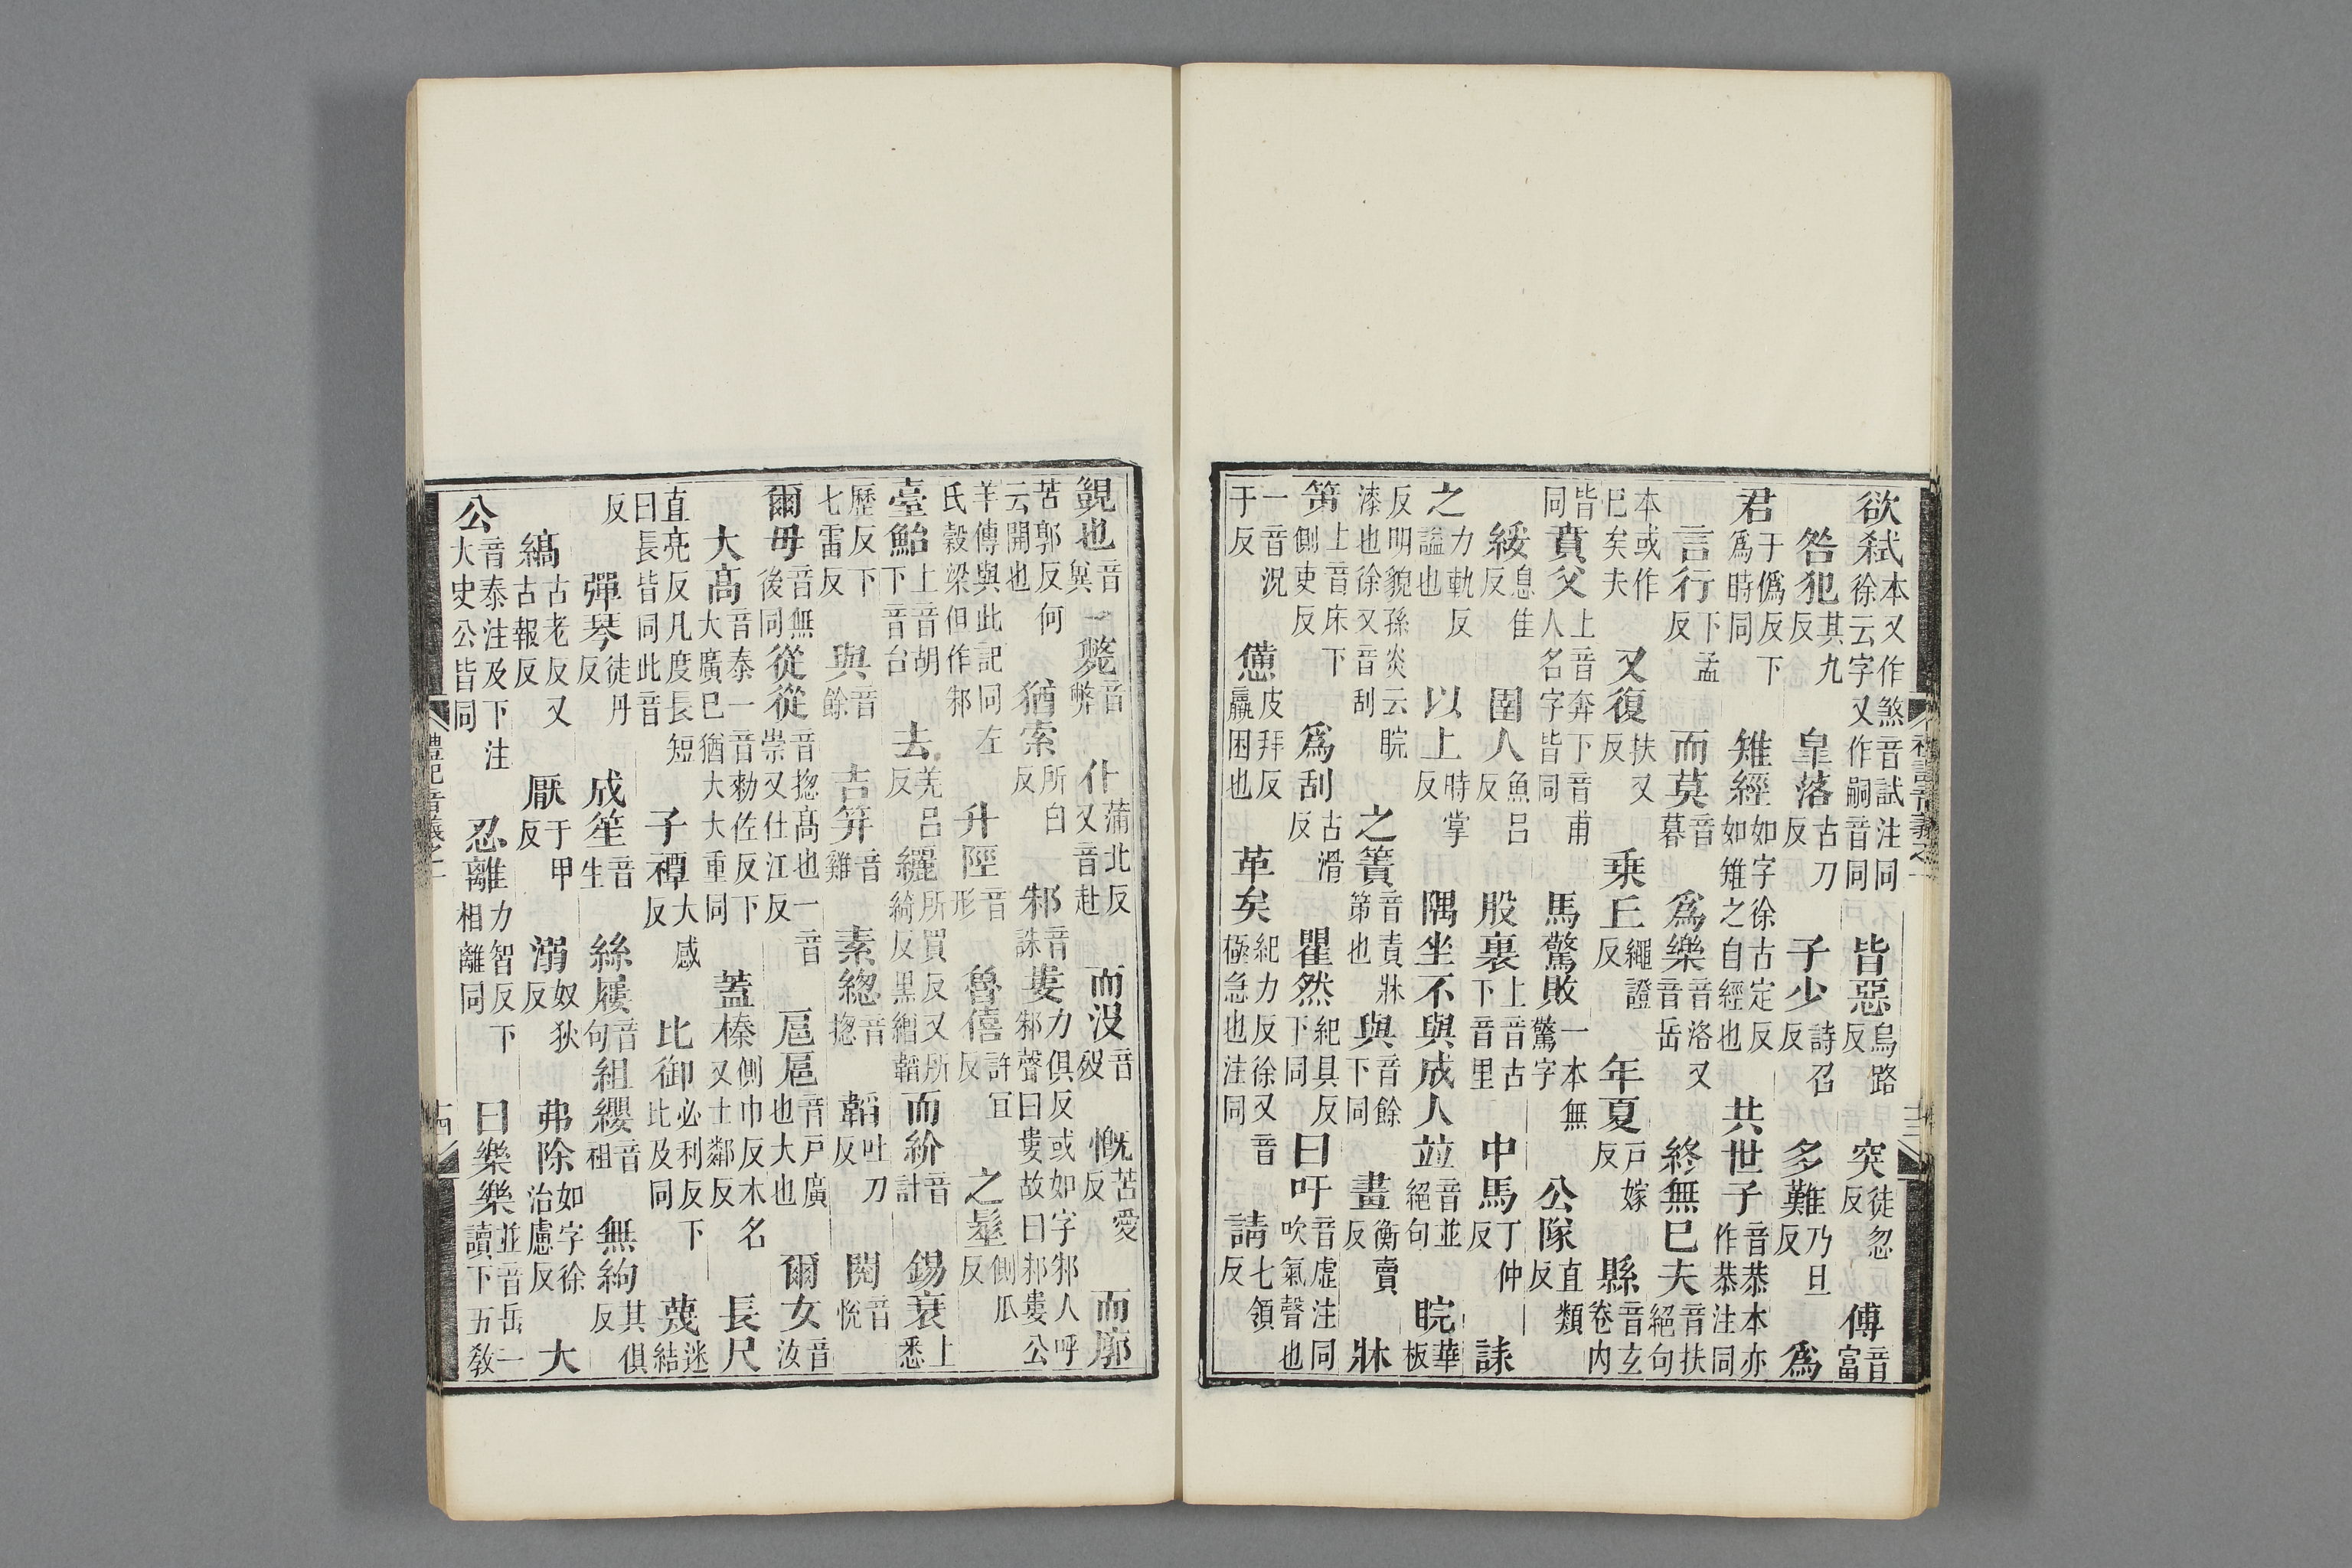 欲弑本又作煞音試注同徐云字又作嗣音同 皆惡烏路反 突徒忽反 傅音富
咎犯其九反 皐落古刀反 子少詩召反 多難乃旦反 爲
君于僞反下爲時同 雉經如字徐古定反如雉之自經也 共世子音恭本亦作恭注同
言行下孟反 而莫音暮 爲樂音洛又音岳 終無已夫音扶絕句
本或作已矣夫 又復扶又反 乗丘繩證反 年夏戶嫁反 縣音玄卷内
皆同 賁父上音奔下音甫人名字皆同 馬驚敗一本無驚字 公隊直類反
綏息隹反 圉人魚吕反 股裏上音古下音里 中馬丁仲反 誄
之力軌反諡也 以上時掌反 隅坐不與成人並音並絕句 睆華板
反明貌孫炎云睆漆也徐又音刮 之簀音責牀第也 與音餘下同 畫衡賣反 牀
笫上音床下側吏反 爲刮古滑反 瞿然紀具反下同 曰吁音虛注同吹氣聲也
一音況于反 憊皮拜反羸困也 革矣紀力反徐又音極急也注同 請七領反
覬也音兾 一斃音弊 仆蒲北反又音赴 而没音歿 慨苦愛反 而廓
苦郭反何云開也 猶索所白反 邾音誅 婁力俱反或如字邾人呼邾聲曰婁故曰邾婁公
羊傳與此記同左氏穀梁但作邾 升陘音形 魯僖許宜反 之髽側瓜反
臺鮐上音胡下音台 去羌吕反 纚所買反又所綺反黒繒韜 而紒音計 錫衰上悉
歷反下七雷反 與音餘 吉笄音雞 素緫音揔 韜吐刀反 閱音悅
爾毋音無後同 從從音揔髙也一音崇又仕江反 扈扈音戶廣也大也 爾女音汝
大髙音泰一音勑佐反下大廣已猶大大重同 蓋榛側巾反木名又士鄰反 長尺
直亮反凡度長短曰長皆同此音 子禫大感反 比御必利反下比及同 蔑迷結
反 彈琴徒丹反 成笙音生 絲屨音句 組纓音祖 無絇其俱反
縞古老反又古報反 厭于甲反 溺奴狄反 弗除如字徐治慮反 大
公音泰注及下注大史公皆同 忍離力智反下相離同 曰樂樂並音岳一讀下五敎